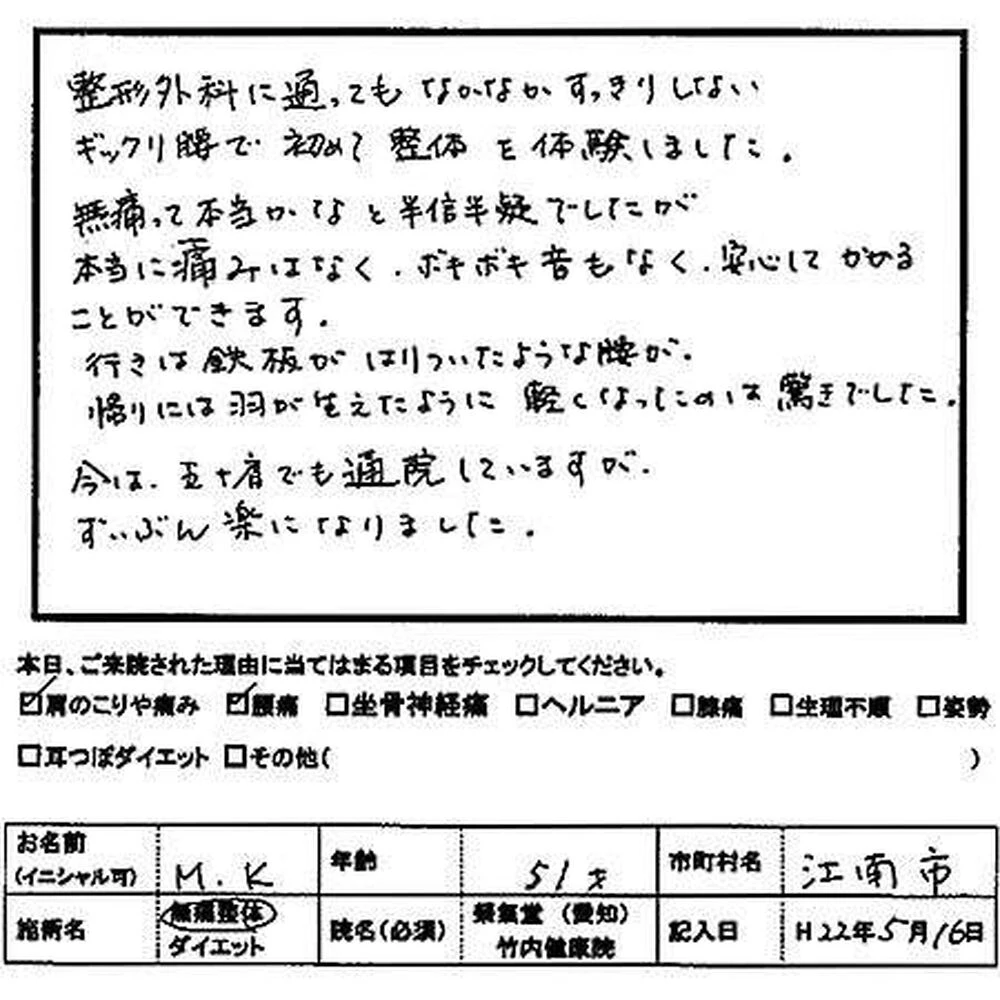 整形外科に通ってもなかなかすっきりしない
ギックリ腰で初めて整体を体験しました。
無痛って本当かなと半信半疑でしたが
本当に痛みはなく、ボキボキ音もなく、安心してかかる
ことができます。
行きは鉄板がはりついたような腰が、
帰りには羽が生えたように軽くなったのは驚きでした。
今は、五十肩でも通院していますが、
ずいぶん楽になりました。
本日、ご来院された理由に当てはまる項目をチェックしてください。
☑肩のこりや痛み ☑腰痛 □坐骨神経痛 □ヘルニア □膝痛 □生理不順 □姿勢
□耳つぼダイエット □その他( )
お名前(イニシャル可) M.K 年齢 51才 市町村名 江南市
施術名 無痛整体 ダイエット 院名(必須) 榮氣堂(愛知)竹内健康院 記入日 H22年5月16日